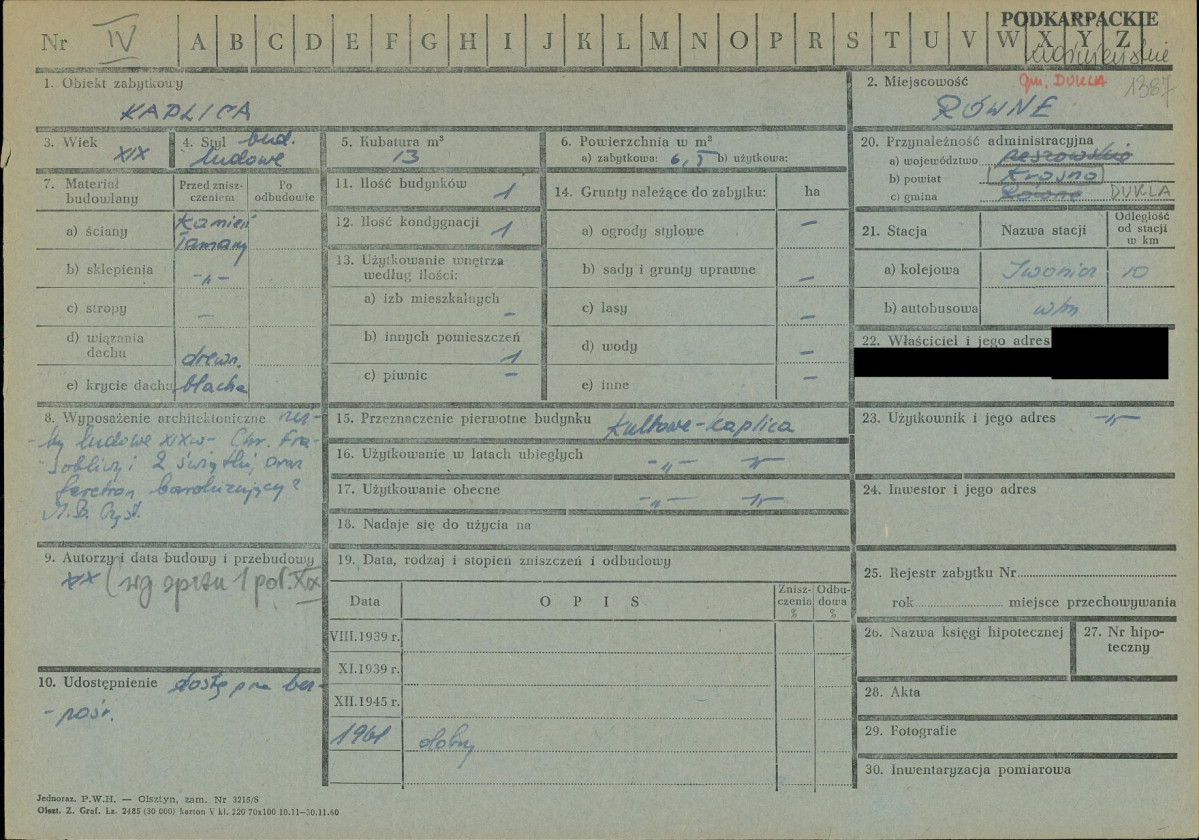 PODKARPACKIE
Nr IV A B C D E F G H I J K L M N O P R S T U V W X Y Z
1. Obiekt zabytkowy
KAPLICA
2. Miejscowość gm. DUKLA 1387
RÓWNE
3. Wiek XIX
4. Styl bud. ludowe
5. Kubatura m³
13
6. Powierzchnia w m²
a) zabytkowa: 6,5 b) użytkowa:
7. Materiał budowlany
Przed zniszczeniem
Po odbudowie
a) ściany kamień łamany
b) sklepienia -„-
c) stropy –
d) wiązania dachu drewn.
e) krycie dachu blacha
8. Wyposażenie architektoniczne rzeź-
by ludowe XIX w - Chr. Fra-
sobliwy i 2 świątki, oraz
feretron barokizujący?
M.B. Częst.
9. Autorzy i data budowy i przebudowy
XIX (wg spisu 1 poł. XIX
10. Udostępnienie dostępna bez-
-pośr.
11. Ilość budynków 1
12. Ilość kondygnacji 1
13. Użytkowanie wnętrza według ilości:
a) izb mieszkalnych –
b) innych pomieszczeń 1
c) piwnic –
14. Grunty należące do zabytku: ha
a) ogrody stylowe –
b) sady i grunty uprawne –
c) lasy –
d) wody –
e) inne –
15. Przeznaczenie pierwotne budynku kultowe-kaplica
16. Użytkowanie w latach ubiegłych -„-
17. Użytkowanie obecne -„-
18. Nadaje się do użycia na
19. Data, rodzaj i stopień zniszczeń i odbudowy
Data OPIS Zniszczenia % Odbudowa %
VIII.1939 r.
XI.1939 r.
XII.1945 r.
1961 dobry
20. Przynależność administracyjna
a) województwo rzeszowskie
b) powiat Krosno
c) gmina Równe DUKLA
21. Stacja Nazwa stacji Odległość od stacji w km
a) kolejowa Iwonicz 10
b) autobusowa w/m
22. Właściciel i jego adres
23. Użytkownik i jego adres -„-
24. Inwestor i jego adres
25. Rejestr zabytku Nr
rok miejsce przechowywania
26. Nazwa księgi hipotecznej
27. Nr hipoteczny
28. Akta
29. Fotografie
30. Inwentaryzacja pomiarowa
Jednoraz. P.W.H. — Olsztyn, zam. Nr 3215/S
Olszt. Z. Graf. Lz. 2485 (30 000) karton V kl. 220 70x100 10.11—30.11.60